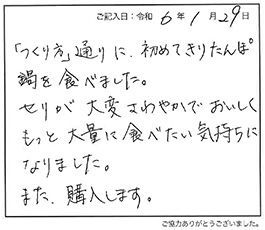 ご記入日：令和 6 年 1 月 29 日
「つくり方」通りに、初めてきりたんぽ
鍋を食べました。
セリが大変さわやかでおいしく
もっと大量に食べたい気持ちに
なりました。
また、購入します。
ご協力ありがとうございました。